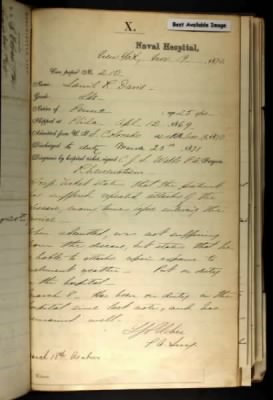 Best Available Image
X.
Naval Hospital,
New York, Nov. 19, 1870
Case paper No. 210
Name Daniel R. Davis
Grade Lds.
Native of Penna Age 25 yrs
Shipped at Phila Apl. 12, 1869
Admitted from U.S.S. Colorado
Discharged to duty March 23rd 1871
Diagnosis by hospital ticket, signed C. J. S. Wells P.A. Surgeon
Rheumatism
ticket states that the patient
suffered repeated attacks of the
disease, many times since entering the
service
When admitted, was not suffering
from the disease, but states that he
is liable to attacks upon exposure to
inclement weather. Put on duty
in the hospital
March 8. Has been on duty in the
hospital since last note, and has
remained well.
P. A. Surg
March 18th